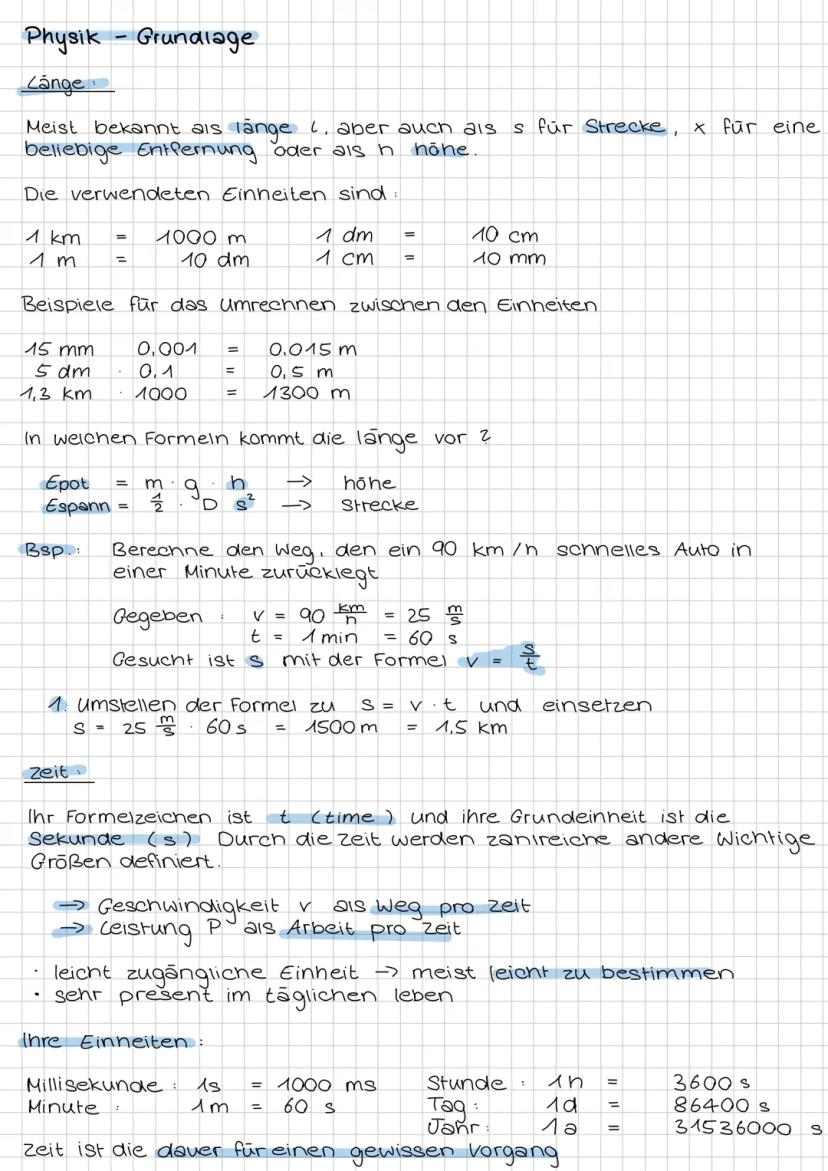 Physik - Grundlage
Länge:
Meist bekannt als länge l, aber auch als s für Strecke, x für eine
beliebige Entfernung oder als h höhe.
Die verwendeten Einheiten sind:
1 km = 1000 m 1 dm = 10 cm
1 m = 10 dm 1 cm = 10 mm
Beispiele für das umrechnen zwischen den Einheiten
15 mm 0,001 = 0.015 m
5 dm · 0.1 = 0,5 m
1,3 km · 1000 = 1300 m
In welchen Formeln kommt die länge vor ?
Epot = m · g · h → höhe
Espann = 1/2 · D s² → Strecke
Bsp.: Berechne den Weg, den ein 90 km/h schnelles Auto in
einer Minute zurücklegt
Gegeben : v = 90 km/h = 25 m/s
t = 1 min = 60 s
Gesucht ist s mit der Formel v = s/t
1. Umstellen der Formel zu s = v · t und einsetzen
s = 25 m/s · 60 s = 1500 m = 1,5 km
Zeit:
Ihr Formelzeichen ist t (time) und ihre Grundeinheit ist die
Sekunde (s) Durch die Zeit werden zahlreiche andere Wichtige
Größen definiert.
→ Geschwindigkeit v als Weg pro Zeit
→ Leistung P als Arbeit pro Zeit
· leicht zugängliche Einheit → meist leicht zu bestimmen
· sehr present im täglichen leben
Ihre Einheiten:
Millisekunde : 1s = 1000 ms Stunde : 1h = 3600 s
Minute : 1m = 60 s Tag : 1d = 86400 s
Jahr : 1a = 31536000 s
Zeit ist die dauer für einen gewissen Vorgang